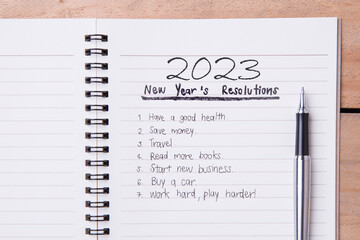 2023
New Year's Resolutions
1. Have a good health.
2. Save money.
3. Travel
4. Read more books.
5. Start new business.
6. Buy a car.
7. Work hard, play harder!